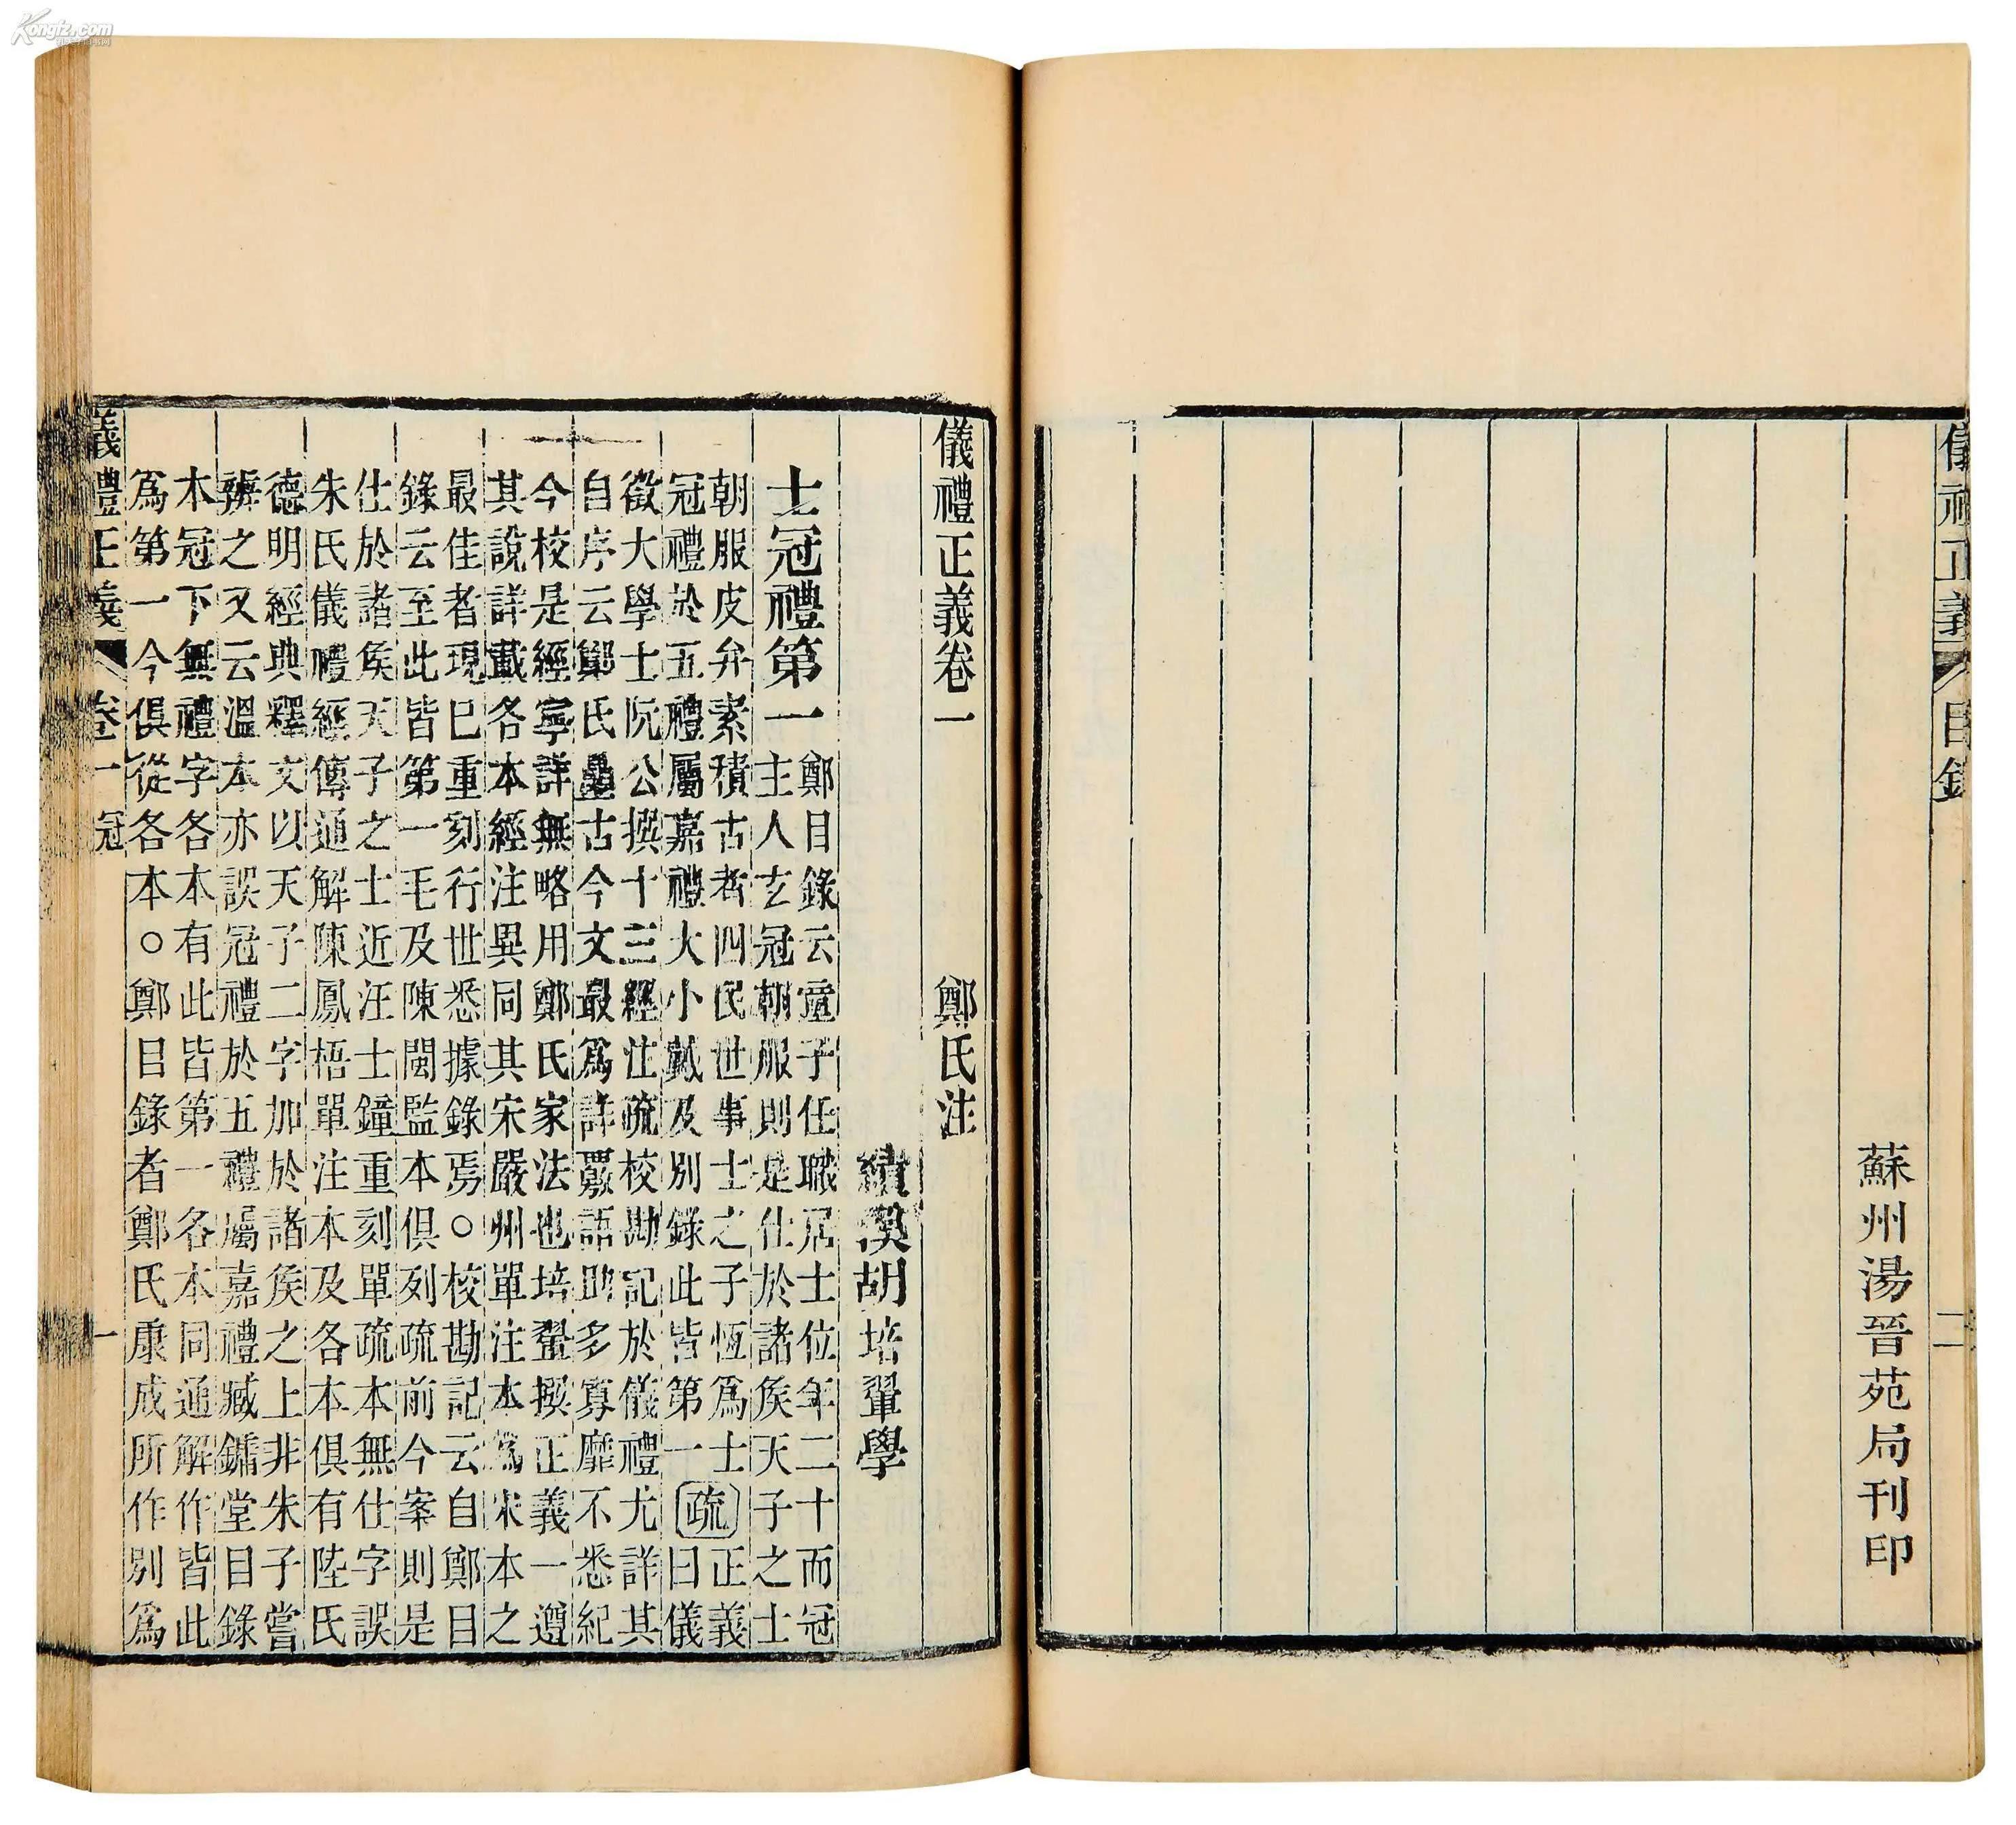 儀禮正義 目錄 二
蘇州湯晉苑局刊印
儀禮正義卷一 鄭氏注
績溪胡培翬學
士冠禮第一
鄭目錄云童子任職居士位年二十而冠
主人玄冠朝服則是仕於諸侯天子之士
朝服皮弁素積古者四民世事士之子恆爲士
冠禮於五禮屬嘉禮大小戴及別錄此皆第一
疏
正義
曰儀
徵大學士阮公撰十三經注疏校勘記於儀禮尤詳其
自序云鄭氏疊古今文最爲詳覈語助多寡靡不悉紀
今校是經寧詳無略用鄭氏家法也培翬撰正義一遵
其說詳載各本經注異同其宋嚴州單注本爲宋本之
最佳者現已重刻行世悉據錄焉○校勘記云自鄭目
錄云至此皆第一毛及陳閩監本俱列疏前今案則是
仕於諸侯天子之士近汪士鐘重刻單疏本無仕字誤
朱氏儀禮經傳通解陳鳳梧單注本及各本俱有陸氏
德明經典釋文以天子二字加於諸侯之上非朱子嘗
辨之又云溫本亦誤冠禮於五禮屬嘉禮臧鏞堂目錄
本冠下無禮字各本有此皆第一各本同通解作皆此
爲第一今俱從各本○鄭目錄者鄭氏康成所作別爲
儀禮正義 卷一 冠 一
Kongfz.com